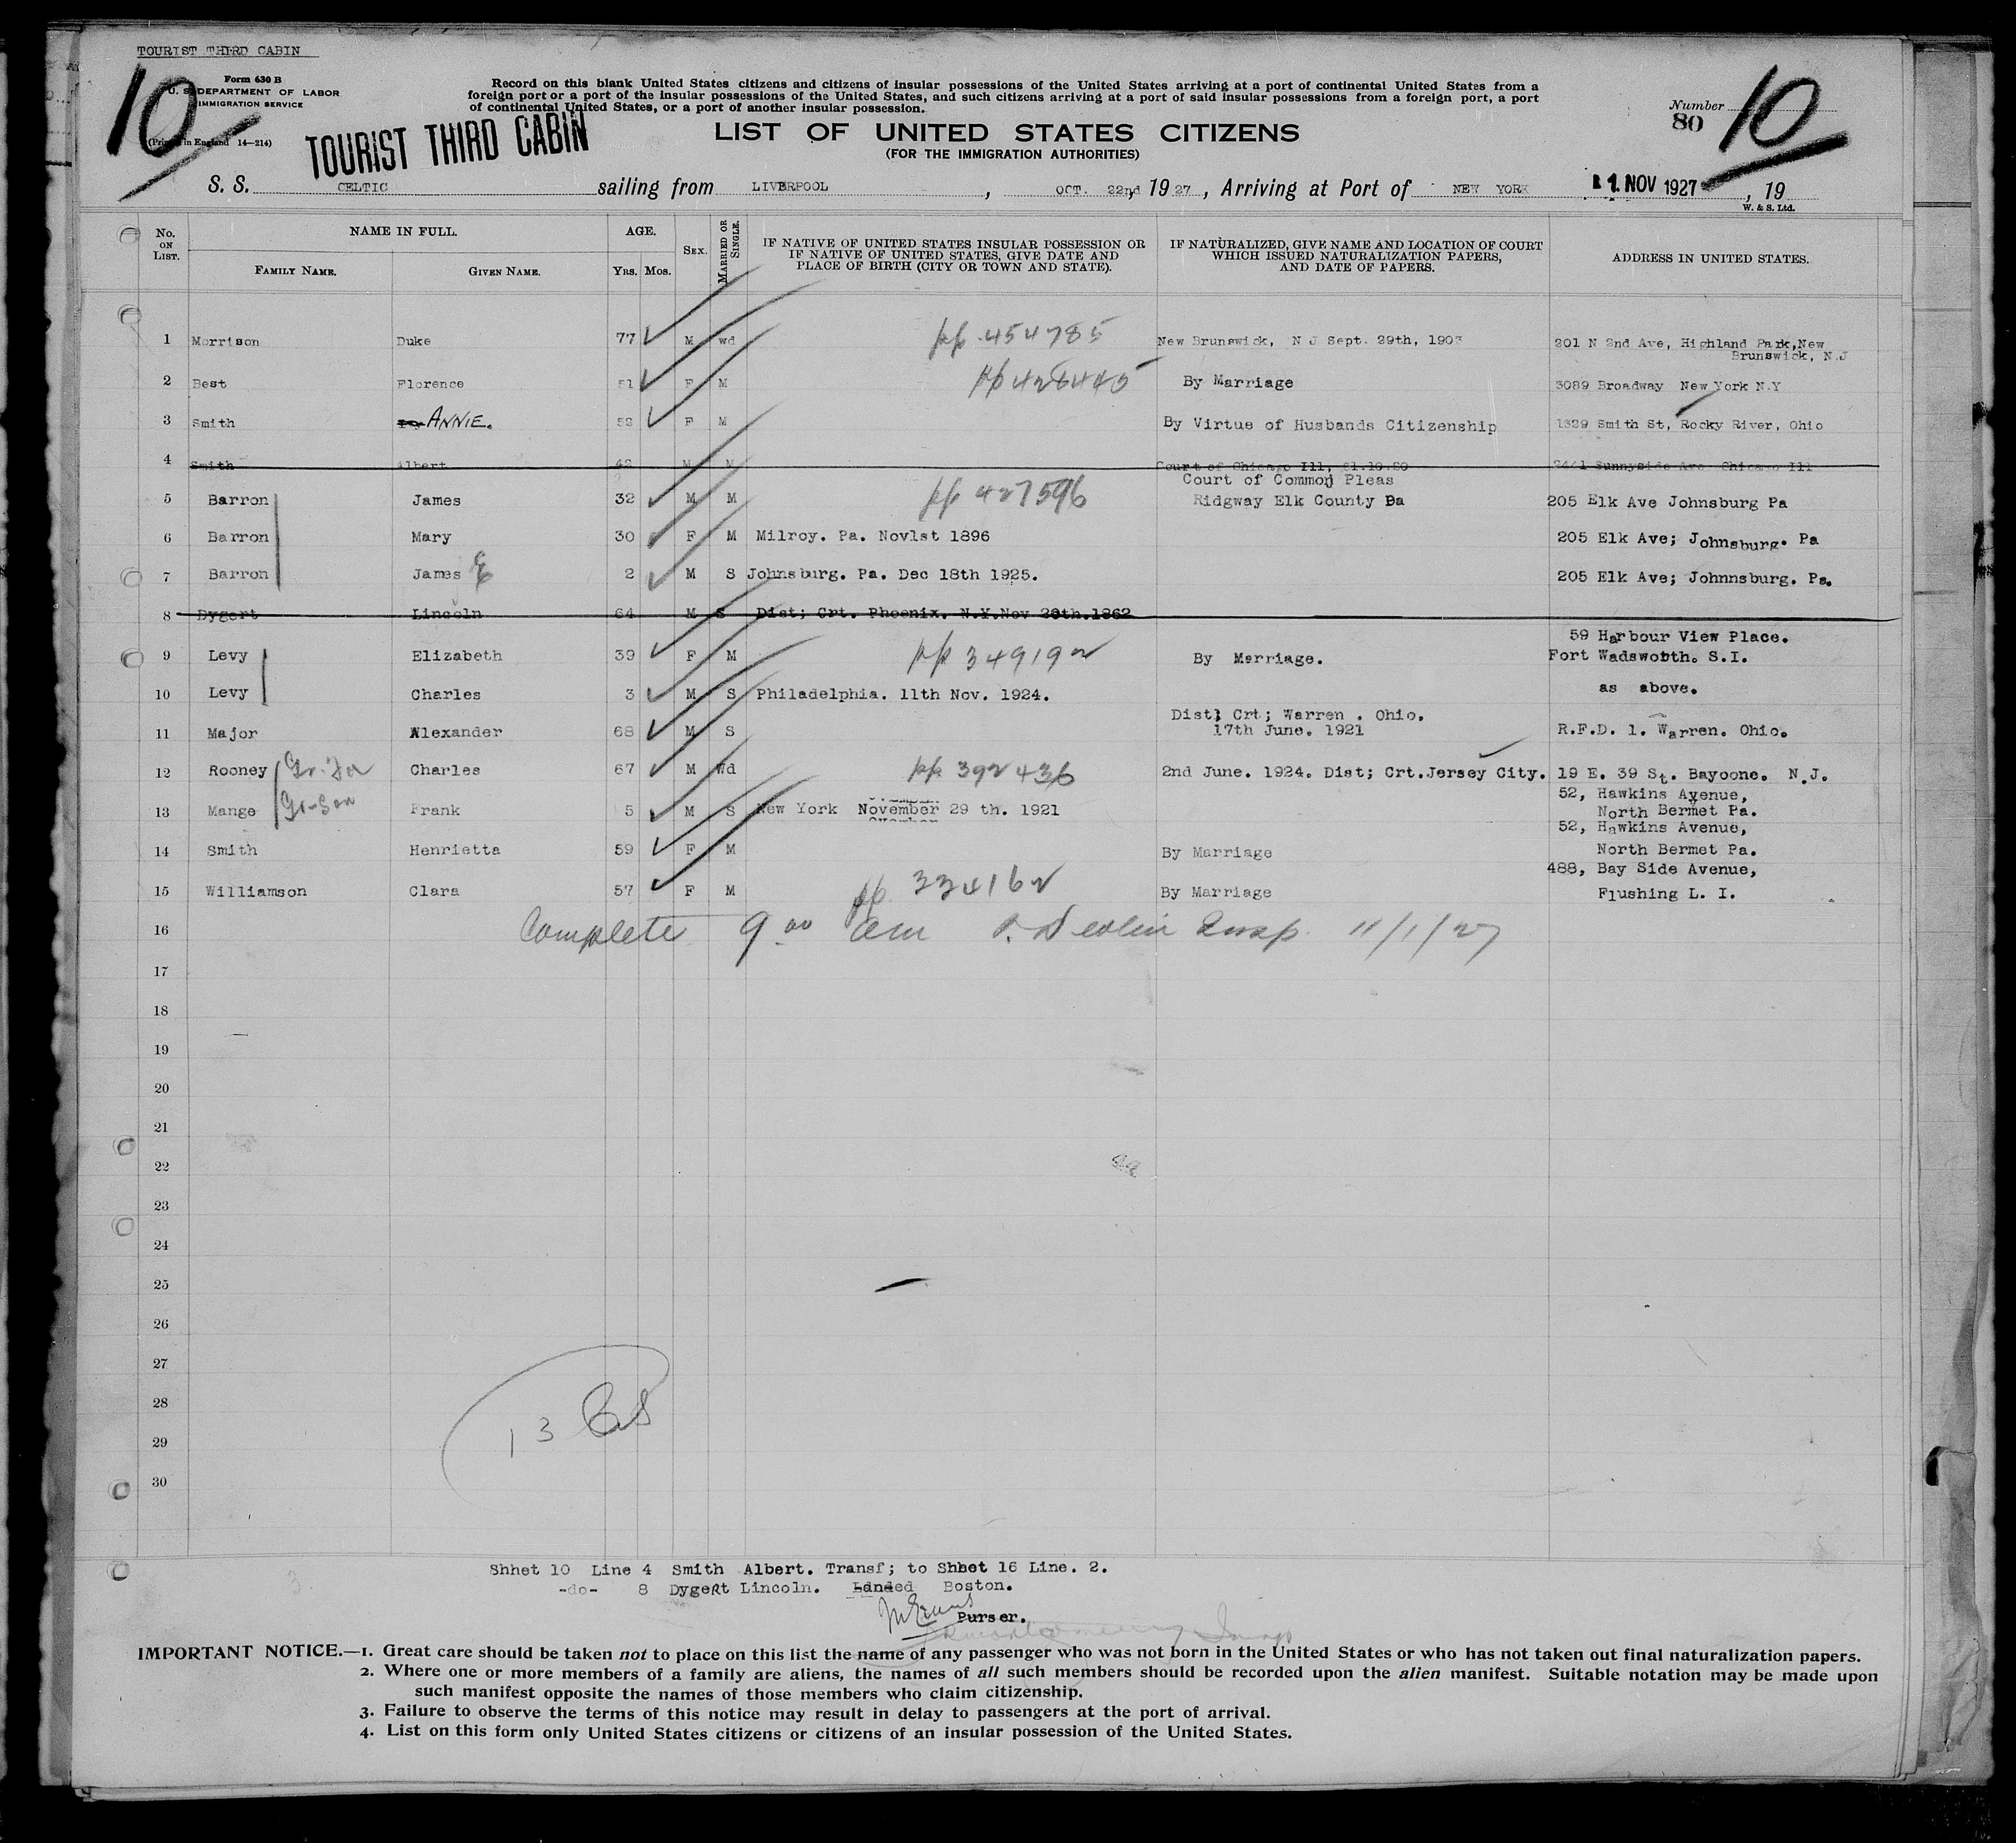 TOURIST THIRD CABIN
10
Form 630 B
U. S. DEPARTMENT OF LABOR
IMMIGRATION SERVICE
(Printed in England 14—214)
Record on this blank United States citizens and citizens of insular possessions of the United States arriving at a port of continental United States from a
foreign port or a port of the insular possessions of the United States, and such citizens arriving at a port of said insular possessions from a foreign port, a port
of continental United States, or a port of another insular possession.
Number 10
80
TOURIST THIRD CABIN
LIST OF UNITED STATES CITIZENS
(FOR THE IMMIGRATION AUTHORITIES)
S. S. CELTIC sailing from LIVERPOOL , OCT. 22nd, 19 27 , Arriving at Port of NEW YORK 1 NOV 1927 , 19
W. & S. Ltd.
No. ON LIST. NAME IN FULL. AGE. SEX. MARRIED OR SINGLE. IF NATIVE OF UNITED STATES INSULAR POSSESSION OR IF NATIVE OF UNITED STATES, GIVE DATE AND PLACE OF BIRTH (CITY OR TOWN AND STATE). IF NATURALIZED, GIVE NAME AND LOCATION OF COURT WHICH ISSUED NATURALIZATION PAPERS, AND DATE OF PAPERS. ADDRESS IN UNITED STATES.
FAMILY NAME. GIVEN NAME. YRS. MOS.
1 Morrison Duke 77 M wd pp 454785 New Brunswick, N J Sept. 29th, 1903 201 N 2nd Ave, Highland Park, New
Brunswick, N.J
2 Best Florence 51 F M pp 428445 By Marriage 3089 Broadway New York N.Y
3 Smith ANNIE. 52 F M By Virtue of Husbands Citizenship 1329 Smith St, Rocky River, Ohio
4 Smith Albert 42 M M Court of Chicago Ill, 2441 Sunnyside Ave Chicago Ill
Court of Common Pleas
5 Barron James 32 M M pp 427596 Ridgway Elk County Pa 205 Elk Ave Johnsburg Pa
6 Barron Mary 30 F M Milroy. Pa. Nov1st 1896 205 Elk Ave; Johnsburg. Pa
7 Barron James E 2 M S Johnsburg. Pa. Dec 18th 1925. 205 Elk Ave; Johnnsburg. Pa.
8 Dygert Lincoln 64 M S Dist; Crt. Phoenix. N.Y. Nov 28th. 1862
59 Harbour View Place.
9 Levy Elizabeth 39 F M pp 349192 By Merriage. Fort Wadsworth. S.I.
10 Levy Charles 3 M S Philadelphia. 11th Nov. 1924. as above.
Dist; Crt; Warren . Ohio.
11 Major Alexander 68 M S 17th June. 1921 R.F.D. 1. Warren. Ohio.
12 Rooney Gr. Fa Charles 67 M Wd pp 392436 2nd June. 1924. Dist; Crt. Jersey City. 19 E. 39 St. Bayoone. N.J.
52, Hawkins Avenue,
13 Mange Gr-Son Frank 5 M S New York November 29 th. 1921 North Bermet Pa.
52, Hawkins Avenue,
14 Smith Henrietta 59 F M By Marriage North Bermet Pa.
488, Bay Side Avenue,
15 Williamson Clara 57 F M pp 334162 By Marriage Flushing L. I.
16 Complete 9 00 am Devlin Insp. 11/1/27
17
18
19
20
21
22
23
24
25
26
27
28
29
30
13
Shhet 10 Line 4 Smith Albert. Transf; to Shhet 16 Line. 2.
-do- 8 Dygert Lincoln. Landed Boston.
Purser.
IMPORTANT NOTICE.—1. Great care should be taken not to place on this list the name of any passenger who was not born in the United States or who has not taken out final naturalization papers.
2. Where one or more members of a family are aliens, the names of all such members should be recorded upon the alien manifest. Suitable notation may be made upon
such manifest opposite the names of those members who claim citizenship.
3. Failure to observe the terms of this notice may result in delay to passengers at the port of arrival.
4. List on this form only United States citizens or citizens of an insular possession of the United States.